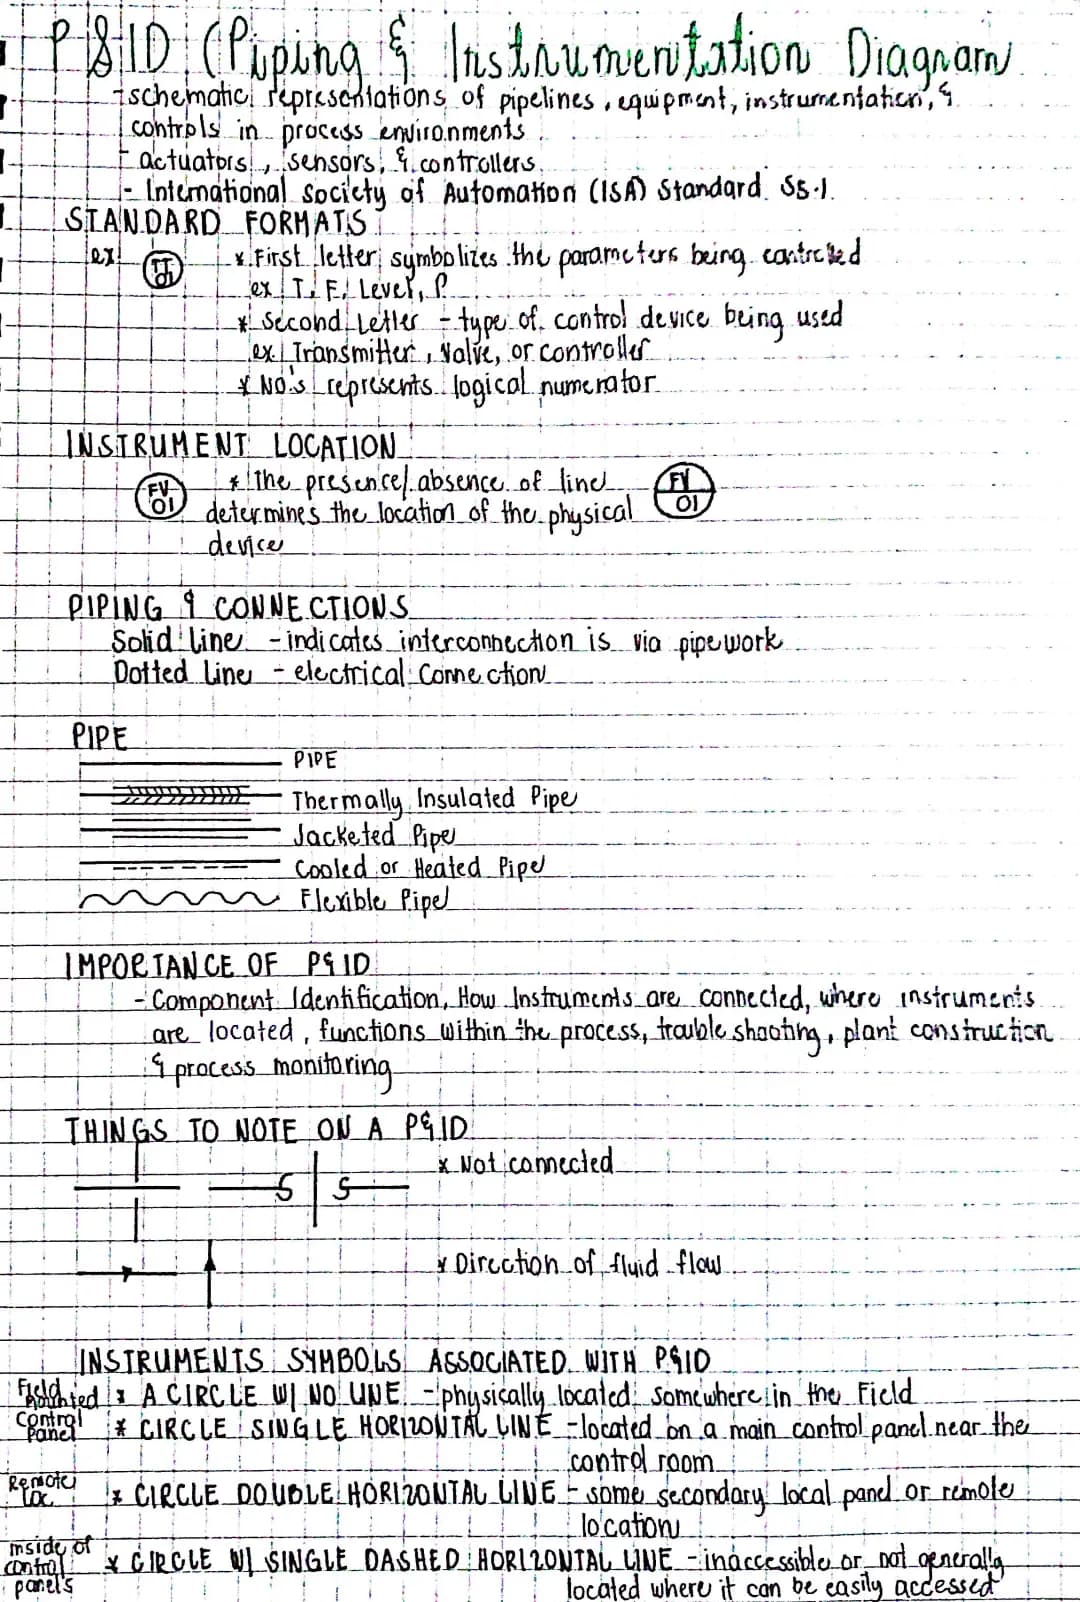 P&ID (Piping & Instrumentation Diagram
- schematic representations of pipelines, equipment, instrumentation, &
controls in process environments
- actuators, sensors, & controllers
- International Society of Automation (ISA) Standard S5.1.
STANDARD FORMATS
ex| TT 01 * First letter symbolizes the parameters being controlled
ex| T, F, Level, P
* Second Letter - type of control device being used
ex| Transmitter, Valve, or controller
* No's represents logical numerator
INSTRUMENT LOCATION
FV 01 * the presence/absence of line FV 01
determines the location of the physical
device
PIPING & CONNECTIONS
Solid Line - indicates interconnection is via pipework
Dotted Line - electrical Connection
PIPE
PIPE
Thermally Insulated Pipe
Jacketed Pipe
Cooled or Heated Pipe
Flexible Pipe
IMPORTANCE OF P&ID
- Component Identification, How Instruments are connected, where instruments
are located, functions within the process, trouble shooting, plant construction
& process monitoring
THINGS TO NOTE ON A P&ID
* Not connected
* Direction of fluid flow
INSTRUMENTS SYMBOLS ASSOCIATED WITH P&ID
Field mounted * A CIRCLE W/ NO LINE - physically located somewhere in the Field
Control Panel * CIRCLE SINGLE HORIZONTAL LINE - located on a main control panel near the
control room
Remote Loc * CIRCLE DOUBLE HORIZONTAL LINE - some secondary local panel or remote
location
inside of control panels * CIRCLE W/ SINGLE DASHED HORIZONTAL LINE - inaccessible or not generally
located where it can be easily accessed